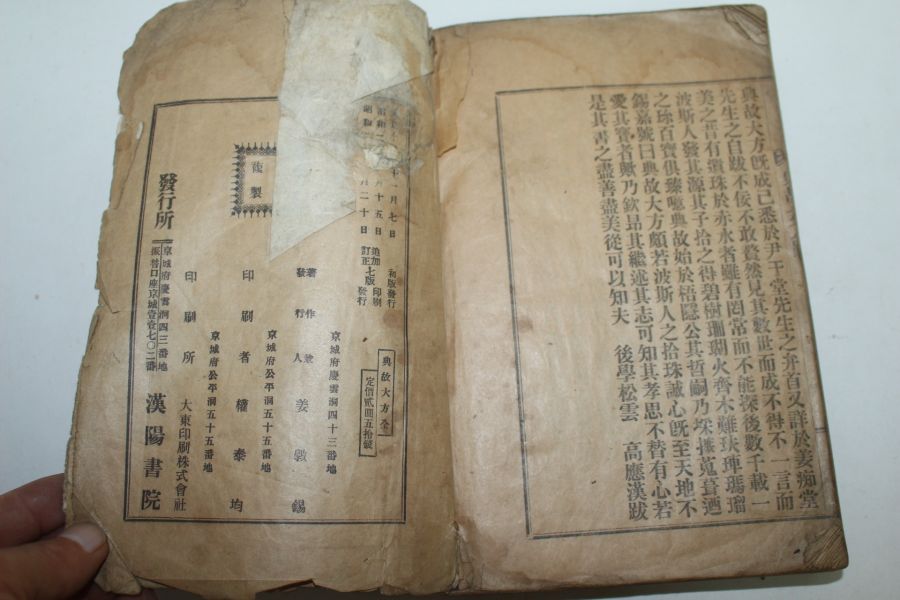 典故大方旣成已悉於尹于堂先生之弁首又詳於姜痴堂
先生之自跋不佞不敢贅然見其數世而成不得不一言而
美之昔有遺珠於赤水者雖有罔常而不能深後數千載一
波斯人發其源其子拾之得碧樹珊瑚火齊木難玞琿瑪瑠
之珎百寶俱臻噫典故始於悟隱公其哲嗣乃採摭蒐葺迺
錫嘉號曰典故大方頗若波斯人之拾珠誠心旣至天地不
愛其寶者歟乃欽昂其繼述其志可知其孝思不替有心若
是其書之盡善盡美從可以知夫 後學松雲 高應漢跋
典故大方全
定價貳圓五拾錢
十一月七日 初版發行
昭和二 月十五日 追加訂正七版印刷
昭和 月二十日 發行
複製
京城府慶雲洞四十三番地
著作兼發行人 姜斅錫
京城府公平洞五十五番地
印刷者 權泰均
京城府公平洞五十五番地
印刷所 大東印刷株式會社
發行所
京城府慶雲洞四三番地
振替口座京城壹壹七〇二番
漢陽書院